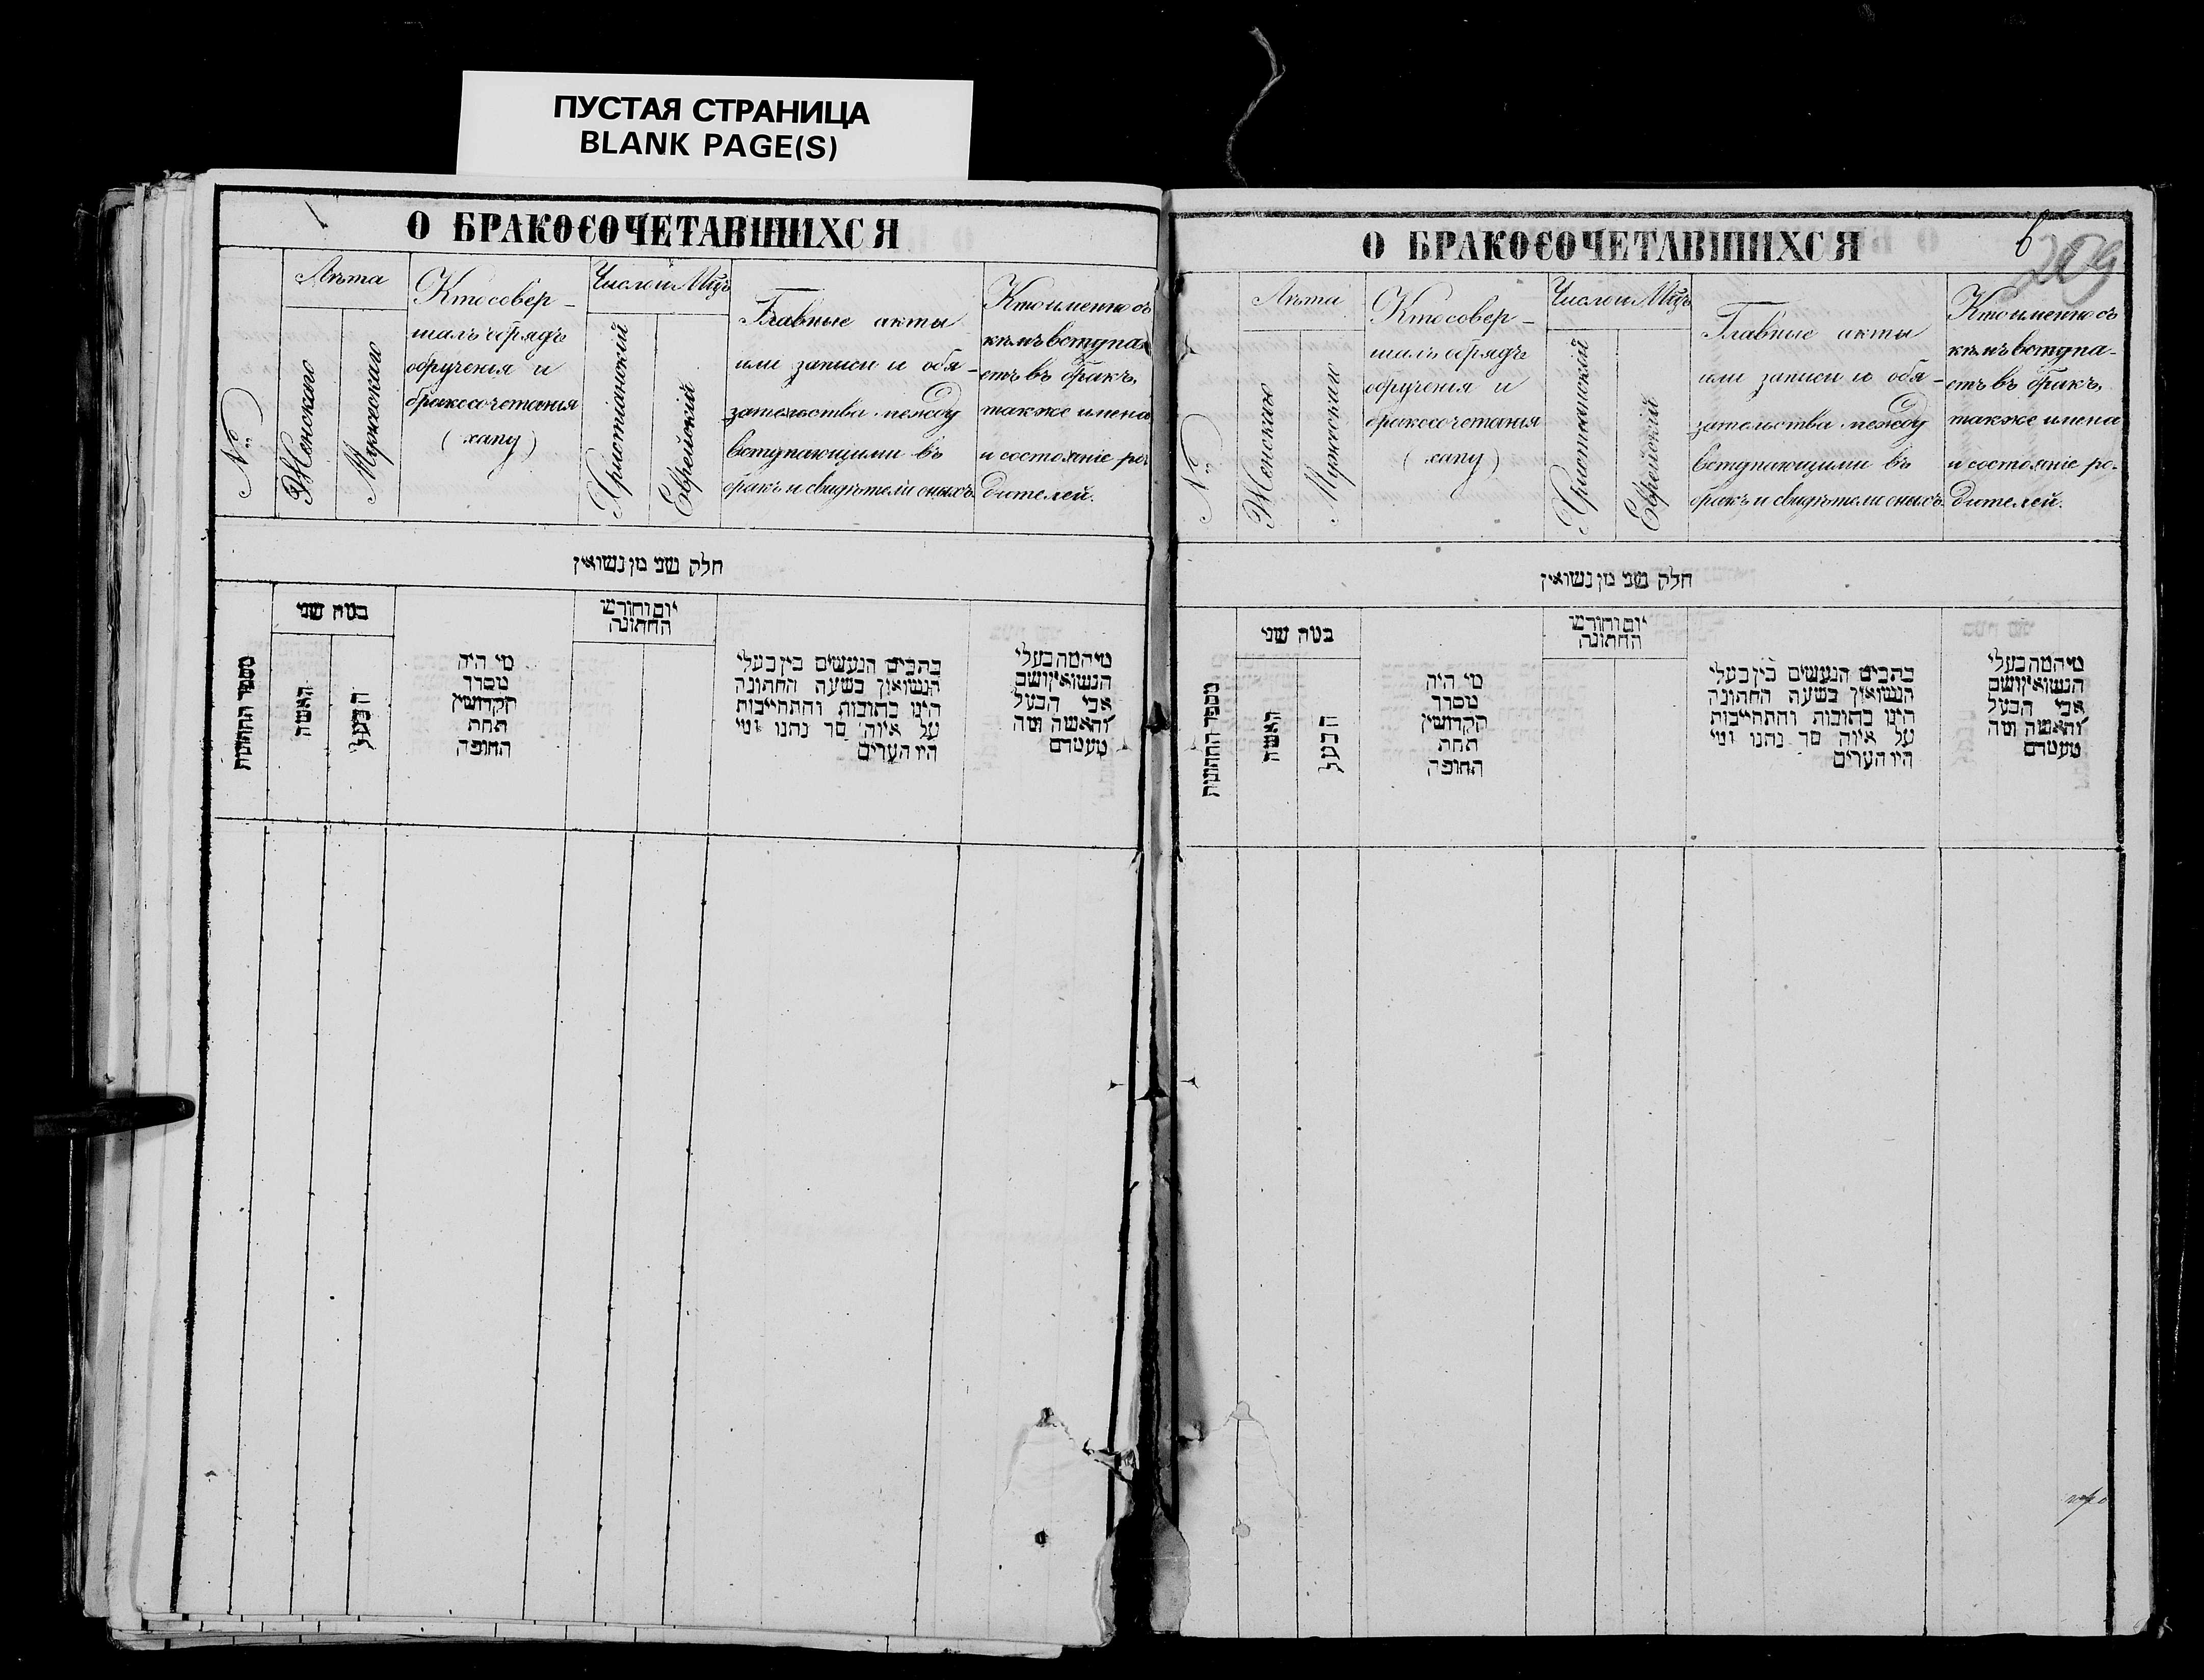 ПУСТАЯ СТРАНИЦА
BLANK PAGE(S)
О БРАКОСОЧЕТАВШИХСЯ
№
Лѣта
Женскаго
Мужскаго
Кто совер-
шалъ обрядъ
обрученія и
бракосочетанія
(хапу)
Число и Мцъ
Христіанскій
Еврейскій
Главные акты
или записи и обя-
зательства между
вступающими въ
бракъ и свидѣтели оныхъ.
Кто именно съ
кѣмъ вступа-
етъ въ бракъ,
также имена
и состояніе ро-
дителей.
חלק שני מן נשואין
מספר החתונות
כמה שני
האשה
הבעל
מי היה
מסדר
הקדושין
תחת
החופה
יום וחודש
החתונה
כתבים הנעשים בין בעלי
הנשואין בשעה החתונה
היינו כתובות והתחייבות
על איזה סך נתנו ומי
היו העדים
מי המה בעלי
הנשואין ושם
אבי הבעל
והאשה ומה
מעמדם
О БРАКОСОЧЕТАВШИХСЯ
6
209
№
Лѣта
Женскаго
Мужскаго
Кто совер-
шалъ обрядъ
обрученія и
бракосочетанія
(хапу)
Число и Мцъ
Христіанскій
Еврейскій
Главные акты
или записи и обя-
зательства между
вступающими въ
бракъ и свидѣтели оныхъ.
Кто именно съ
кѣмъ вступа-
етъ въ бракъ,
также имена
и состояніе ро-
дителей.
חלק שני מן נשואין
מספר החתונות
כמה שני
האשה
הבעל
מי היה
מסדר
הקדושין
תחת
החופה
יום וחודש
החתונה
כתבים הנעשים בין בעלי
הנשואין בשעה החתונה
היינו כתובות והתחייבות
על איזה סך נתנו ומי
היו העדים
מי המה בעלי
הנשואין ושם
אבי הבעל
והאשה ומה
מעמדם